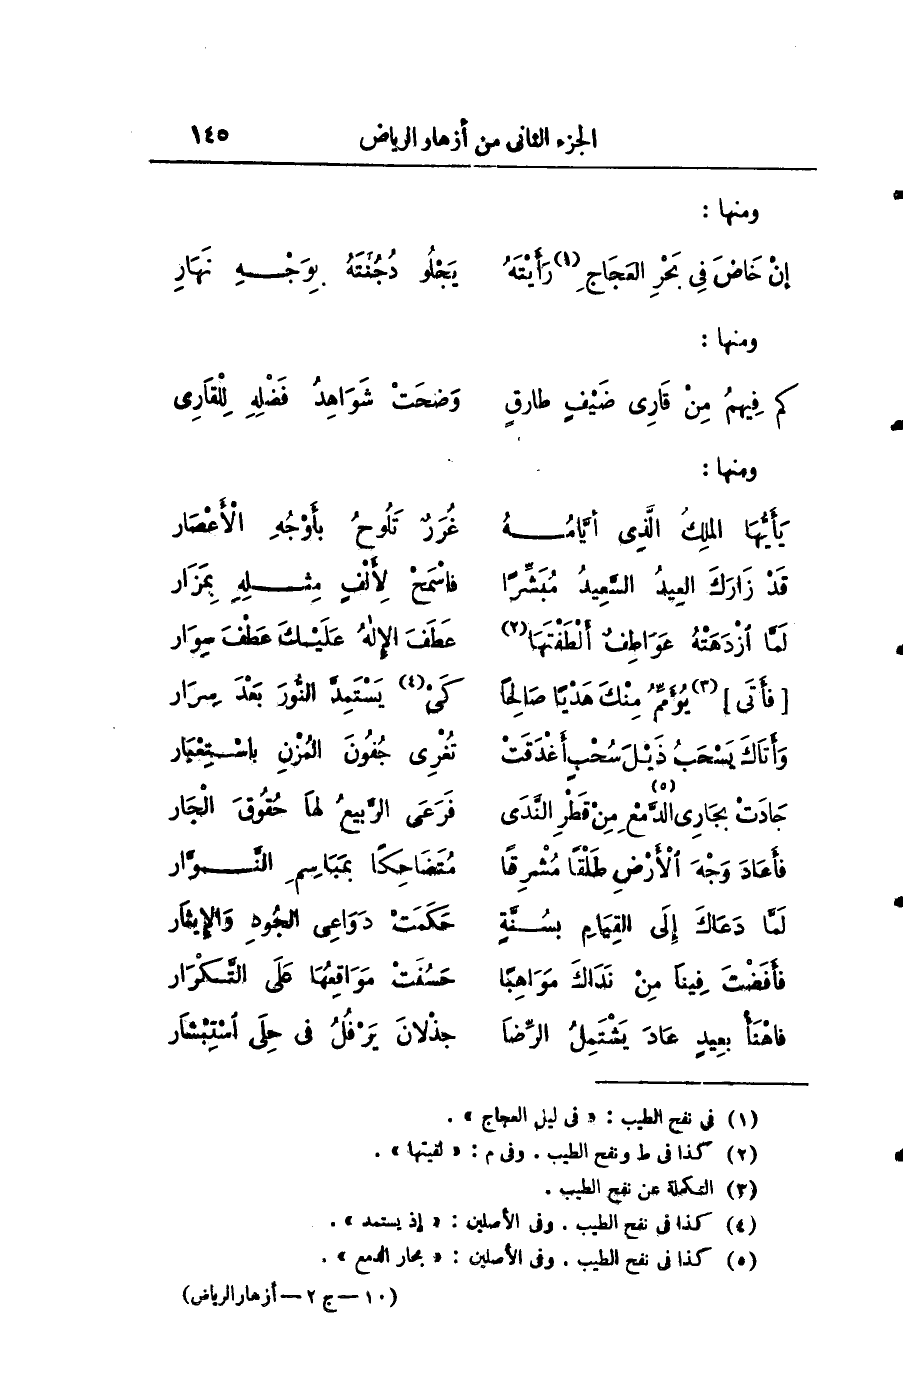 الجزء الثانى من أزهار الرياض ١٤٥
ومنها :
إنْ خَاضَ فِى بَحْرِ العَجَاجِ (١) رَأَيْتَهُ يَجْلُو دُجُنَّتَهُ بِوَجْهِ نَهَارِ
ومنها :
كم فِيهمُ مِنْ قَارِى ضَيْفٍ طارقٍ وَضحَتْ شَوَاهِدُ فَضْلِهِ لِلْقَارِى
ومنها :
يَأَيُّهَا الملِكُ الَّذِى أيَّامُهُ غُرَرٌ تَلُوحُ بأَوْجُهِ الْأَعْصَارِ
قَدْ زَارَكَ العِيدُ السَّعِيدُ مُبَشِّرًا فاسْمَحْ لِأَلْفٍ مِثْلِهِ بِمَزَار
لَمَّا ٱزْدَهَتْهُ عَوَاطِفٌ أَلْطَفْتَهَا (٢) عَطَفَ الإلهُ عَلَيْكَ عَطْفَ سِوَار
[ فأَتَى ] (٣) يُؤَمِّمُ مِنْكَ هَدْيًا صَالِحًا كَىْ (٤) يَسْتَمِدَّ النُّورَ بَعْدَ سِرَار
وَأَتَاكَ يَسْحَبُ ذَيْلَ سُحْبٍ أَغْدَقَتْ تُغْرِى جُفُونَ المُزْنِ باسْتِعْبَار
جَادَتْ بجَارِى الدَّمْعِ (٥) مِنْ قَطْرِ النَّدَى فَرَعَى الرَّبِيعُ لهَا حُقُوقَ الْجَار
فأَعَادَ وَجْهَ ٱلْأَرْضِ طَلْقًا مُشْرِقًا مُتَضَاحِكًا بمَبَاسِمِ النَّوَّار
لَمَّا دَعَاكَ إِلَى القِيَامِ بسُنَّةٍ حَكَمَتْ دَوَاعِى الجُودِ وَالإِيثَار
فأَفَضْتَ فِينَا مِنْ نَدَاكَ مَوَاهِبًا حَسُنَتْ مَوَاقِعُهَا عَلَى التَّكْرَار
فاهْنَأْ بعِيدٍ عَادَ يَشْتَمِلُ الرِّضَا جذْلَانَ يَرْفُلُ فى حِلَى ٱسْتِبْشَار
(١) فى نفح الطيب : « فى ليل العجاج » .
(٢) كذا فى ط ونفح الطيب . وفى م : « لفيتها » .
(٣) التكملة عن نفح الطيب .
(٤) كذا فى نفح الطيب . وفى الأصلين : « إذ يستمد » .
(٥) كذا فى نفح الطيب . وفى الأصلين : « بحار الدمع » .
(١٠ — ج ٢ — أزهار الرياض)